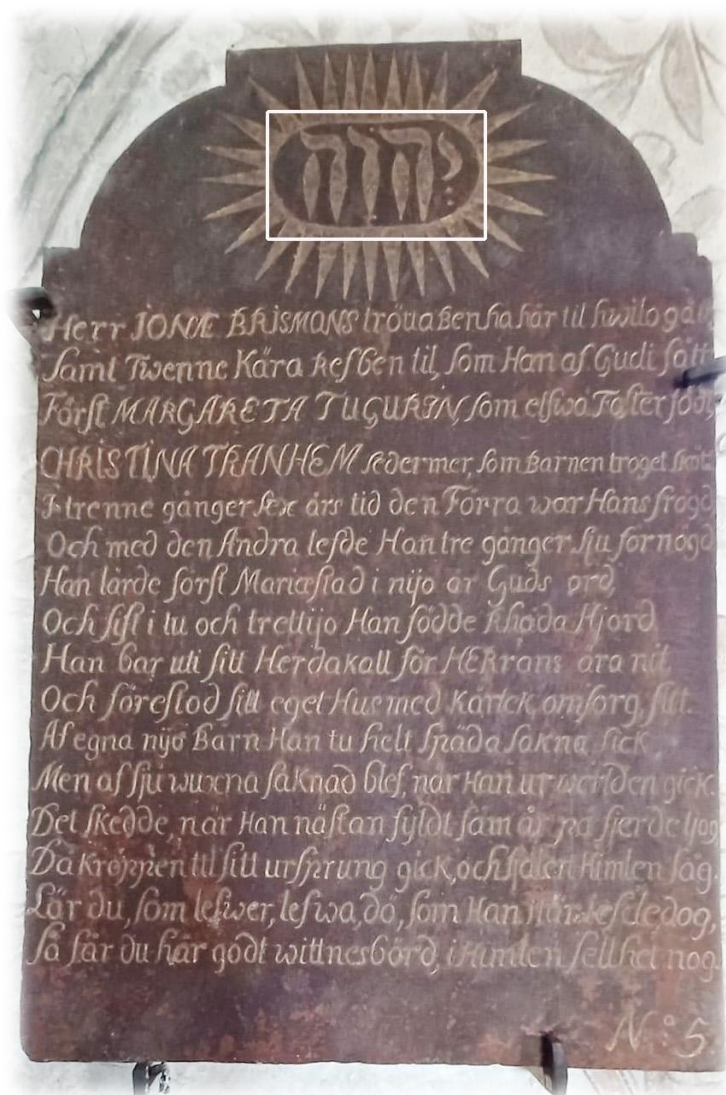 יהוה
Herr JONÆ BRISMANS trötta Ben ha här til hwilo gå
Samt Twenne Kära Refben til, som Han af Gudi fått
Först MARGARETA TUGURIN, som elfwa Foster född,
CHRISTINA TRANHEM sedermer, som Barnen troget skött
I trenne gånger sex års tid den Förra war Hans frögd
Och med den Andra lefde Han tre gånger sju förnögd
Han lärde först Mariæstad i nijo år Guds ord,
Och sist i tu och trettijo Han födde Rhoda Hjord
Han bar uti sitt Herdakall för HERrans ära nit
Och förestod sitt eget Hus med Kärlek, omsorg, flit.
Af egna nijo Barn Han tu helt späda sakna fick
Men af sju wuxna saknad blef, när Han ur werlden gick.
Det skedde, när Han nästan fyldt fäm år på fjerde tjog
Då kroppen til sitt ursprung gick, och själen Himlen såg.
Lär du, som lefwer, lefwa, dö, som Han lefde, dog,
Så får du här godt wittnesbörd, i Himlen sellhet nog.
N:o 5